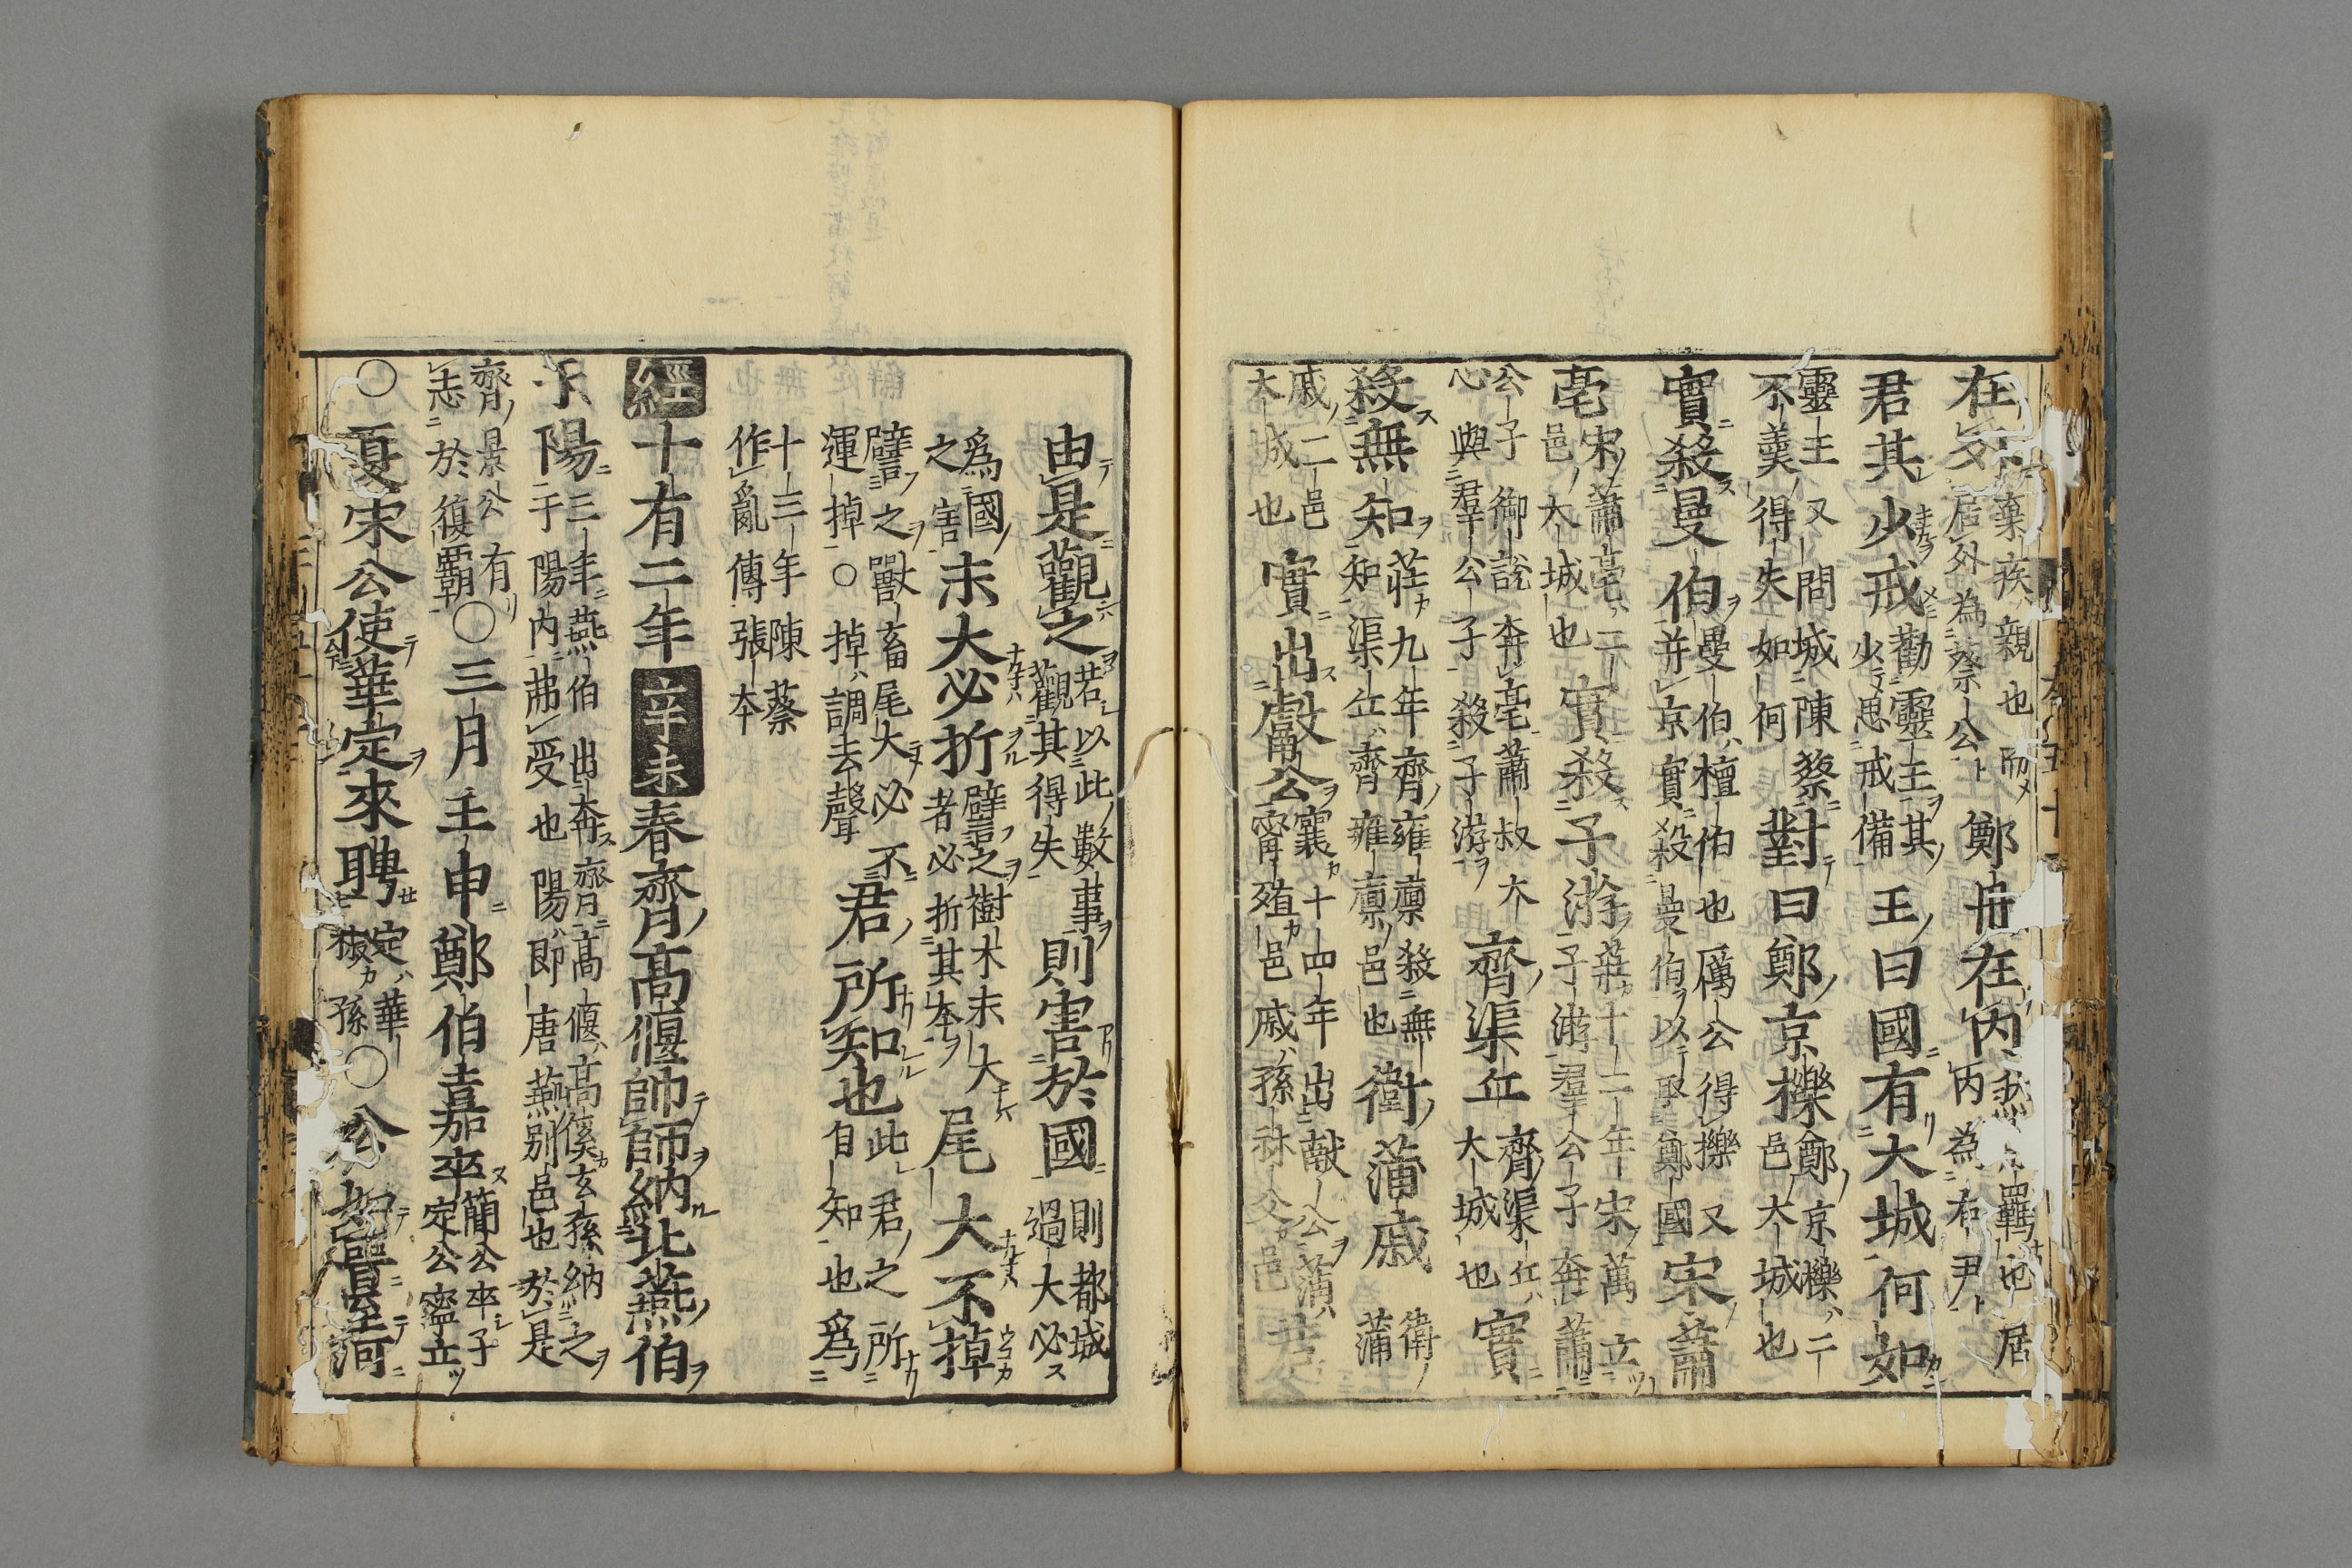 在
棄疾親也
父居外為蔡公
鄭丹在內
羈也居
內為右尹
君其少戒
勸靈王其
少思戒備
王曰國有大城何如
靈王又問城陳蔡
不羹得失如何
對曰鄭京櫟
鄭京櫟二
邑大城也
實殺曼伯
曼伯檀伯也厲公得櫟又
并京實殺曼伯以取鄭國
宋蕭
亳
宋蕭亳二
邑大城也
實殺子游
莊十二年宋萬立
子游羣公子奔蕭
公子御說奔亳蕭叔大
心與羣公子殺子游
齊渠丘
齊渠丘
大城也
實
殺無知
莊九年齊雍廩殺無
知渠丘齊雍廩邑也
衛蒲戚
衛
蒲
戚二邑
大城也
實出獻公
襄十四年出献公蒲
甯殖邑戚孫林父邑
若
由是觀之
若以此數事
觀其得失
則害於國
則都城
過大必
爲國
之害
末大必折
譬之樹木末大
者必折其本
尾大不掉
譬之獸畜尾大必不
運掉○掉調去聲
君所知也
此君之所
自知也爲
十三年陳蔡
作亂傳張本
經十有二年辛未春齊高偃帥師納北燕伯
于陽
三年燕伯出奔齊高偃高傒玄孫納之
于陽內弗受也陽即唐燕別邑也於是
齊景公有
志於復霸
○三月壬申鄭伯嘉卒
簡公卒子
定公寧立
○夏宋公使華定來聘
定華
椒孫
○公如晉至河